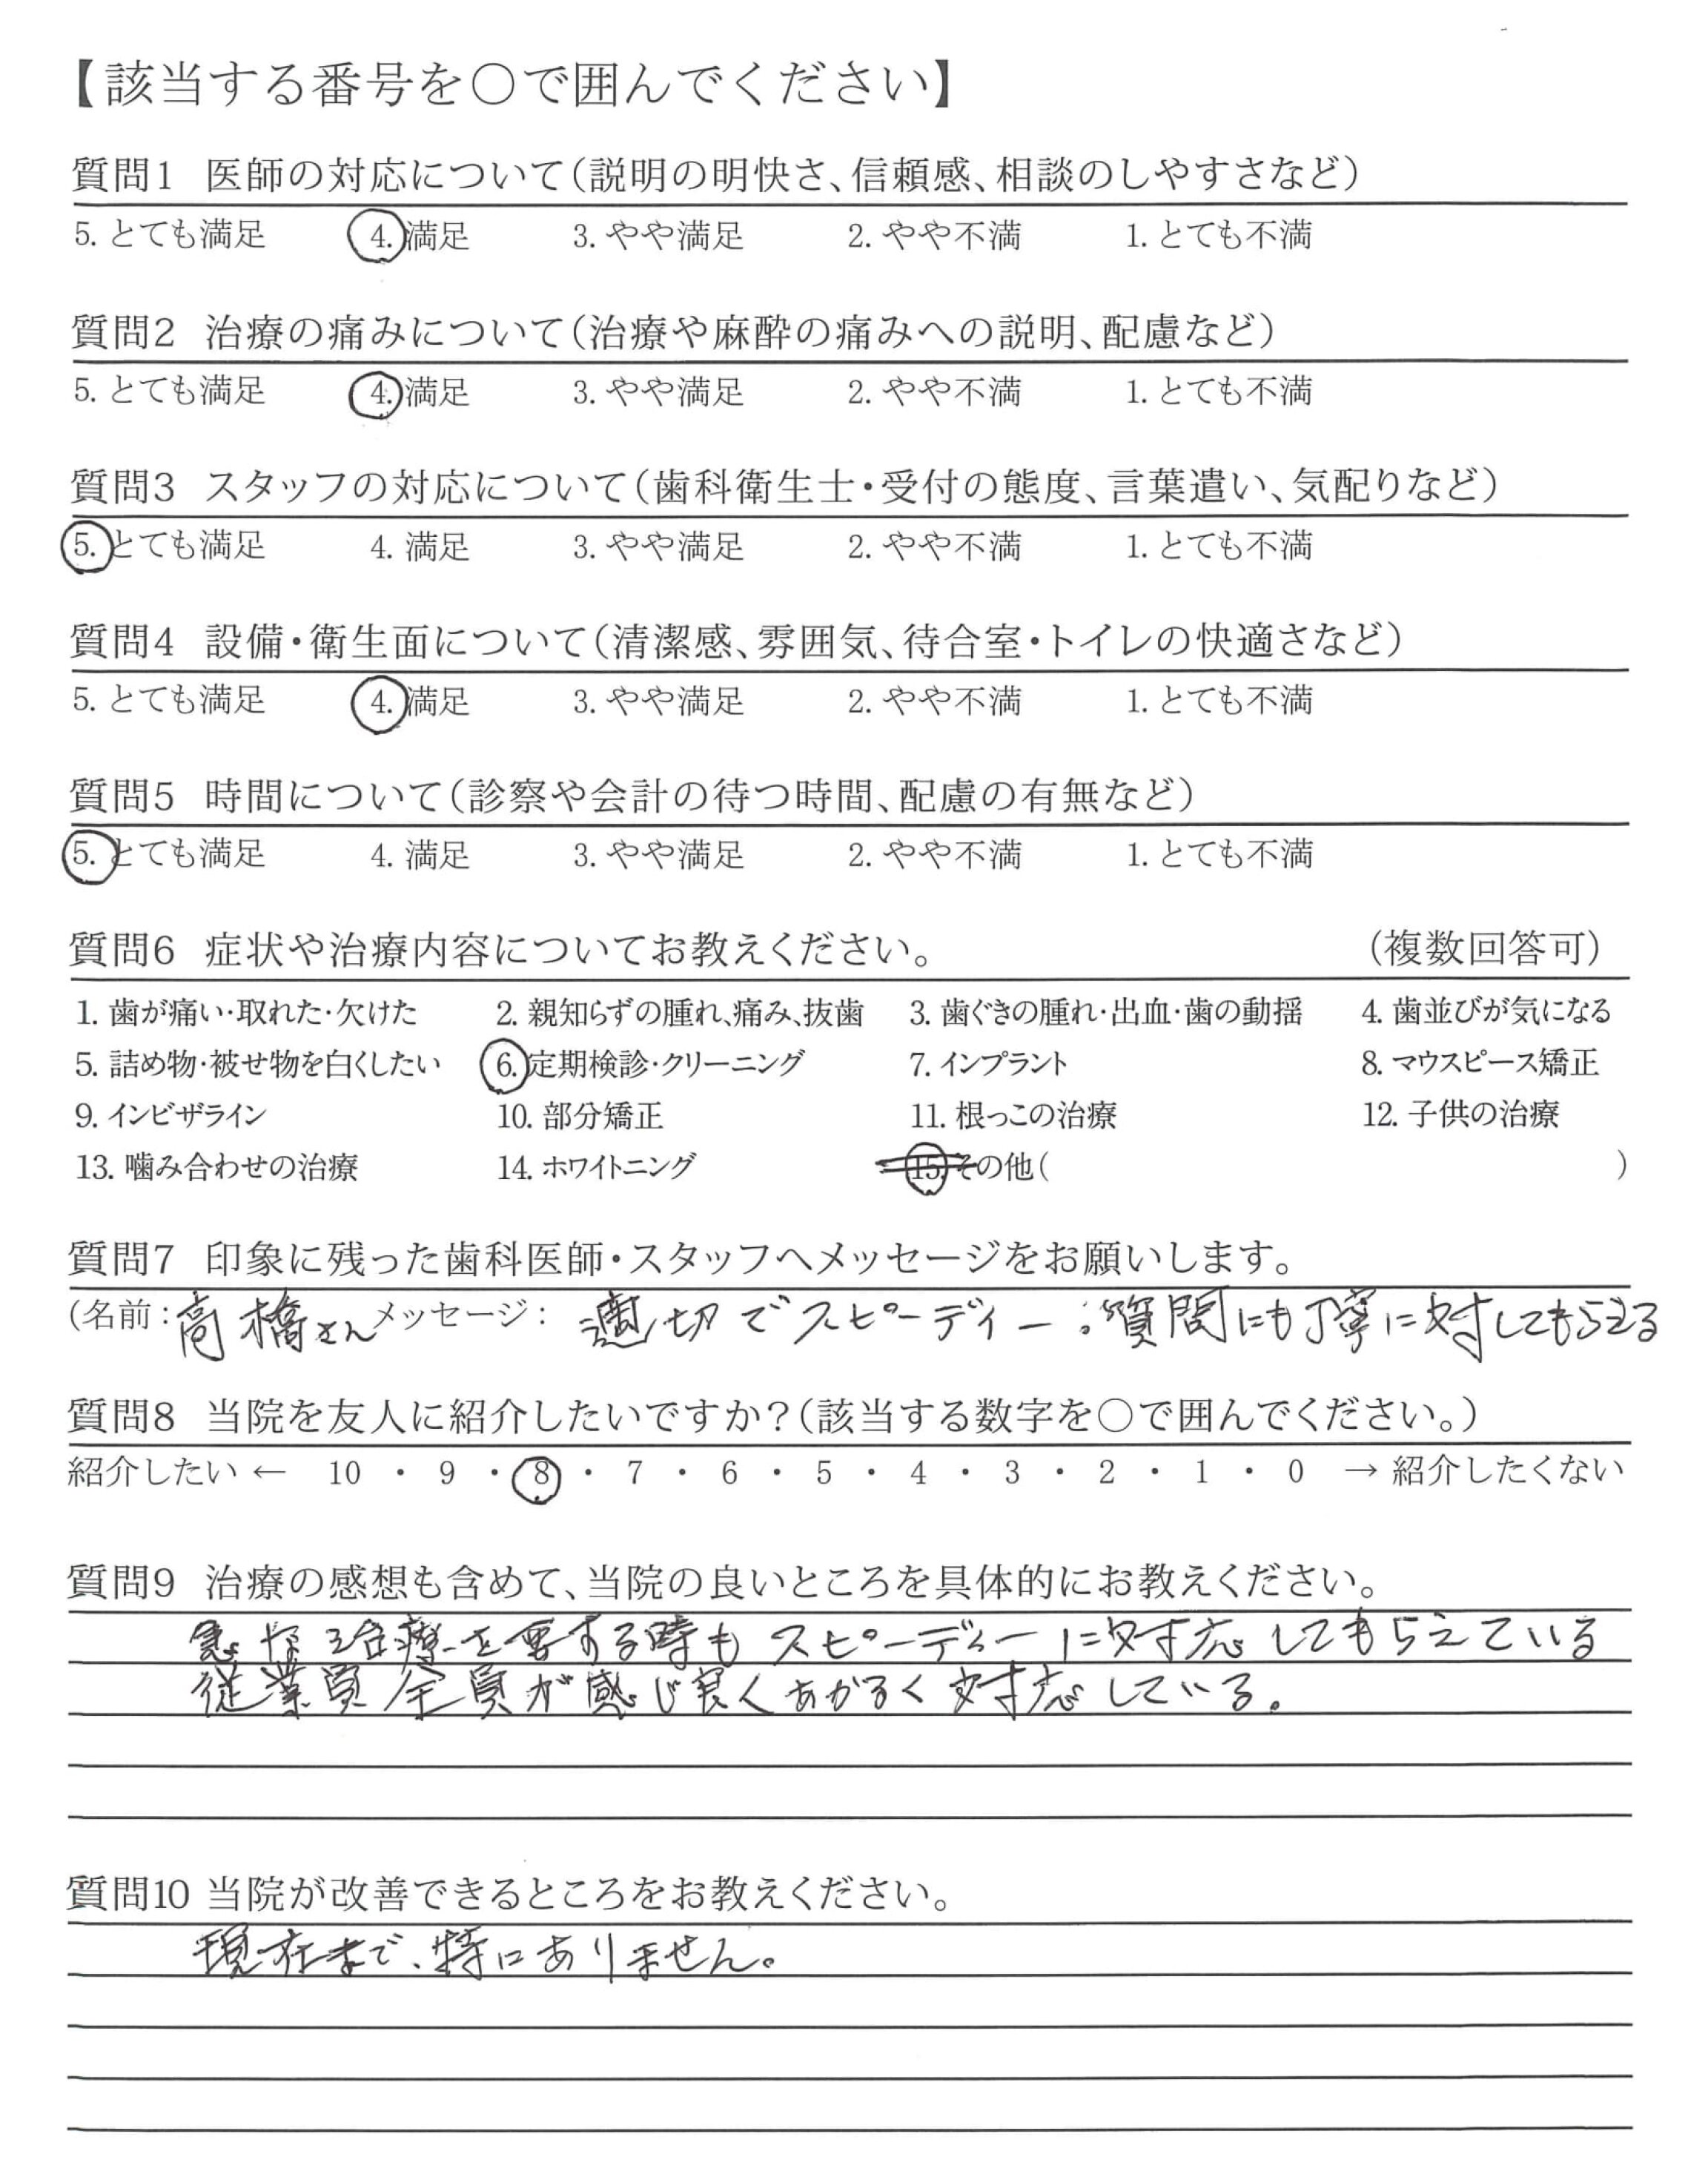 【該当する番号を○で囲んでください】
質問1 医師の対応について(説明の明快さ、信頼感、相談のしやすさなど)
5. とても満足 4. 満足 3. やや満足 2. やや不満 1. とても不満
質問2 治療の痛みについて(治療や麻酔の痛みへの説明、配慮など)
5. とても満足 4. 満足 3. やや満足 2. やや不満 1. とても不満
質問3 スタッフの対応について(歯科衛生士・受付の態度、言葉遣い、気配りなど)
5. とても満足 4. 満足 3. やや満足 2. やや不満 1. とても不満
質問4 設備・衛生面について(清潔感、雰囲気、待合室・トイレの快適さなど)
5. とても満足 4. 満足 3. やや満足 2. やや不満 1. とても不満
質問5 時間について(診察や会計の待つ時間、配慮の有無など)
5. とても満足 4. 満足 3. やや満足 2. やや不満 1. とても不満
質問6 症状や治療内容についてお教えください。 (複数回答可)
1. 歯が痛い・取れた・欠けた 2. 親知らずの腫れ、痛み、抜歯 3. 歯ぐきの腫れ・出血・歯の動揺 4. 歯並びが気になる
5. 詰め物・被せ物を白くしたい 6. 定期検診・クリーニング 7. インプラント 8. マウスピース矯正
9. インビザライン 10. 部分矯正 11. 根っこの治療 12. 子供の治療
13. 噛み合わせの治療 14. ホワイトニング 15. その他( )
質問7 印象に残った歯科医師・スタッフへメッセージをお願いします。
(名前：高橋さん メッセージ： 適切でスピーディー。質問にも丁寧に対してもらえる
質問8 当院を友人に紹介したいですか？(該当する数字を○で囲んでください。)
紹介したい ← 10 ・ 9 ・ 8 ・ 7 ・ 6 ・ 5 ・ 4 ・ 3 ・ 2 ・ 1 ・ 0 → 紹介したくない
質問9 治療の感想も含めて、当院の良いところを具体的にお教えください。
急な治療を要する時もスピーディーに対応してもらえている
従業員全員が感じ良くあかるく対応している。
質問10 当院が改善できるところをお教えください。
現在まで、特にありません。